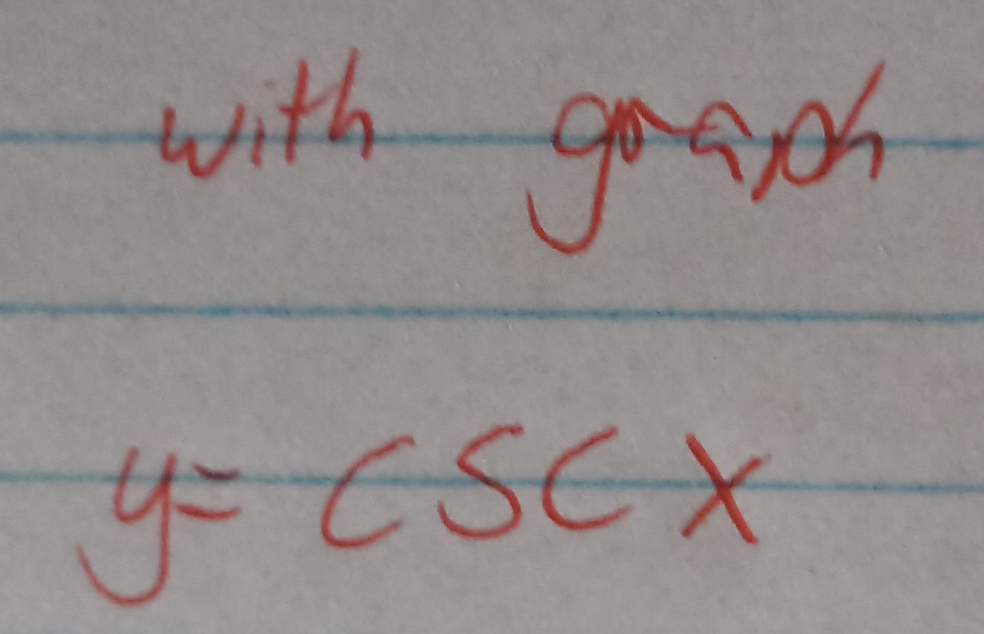 with graph
y= csc x